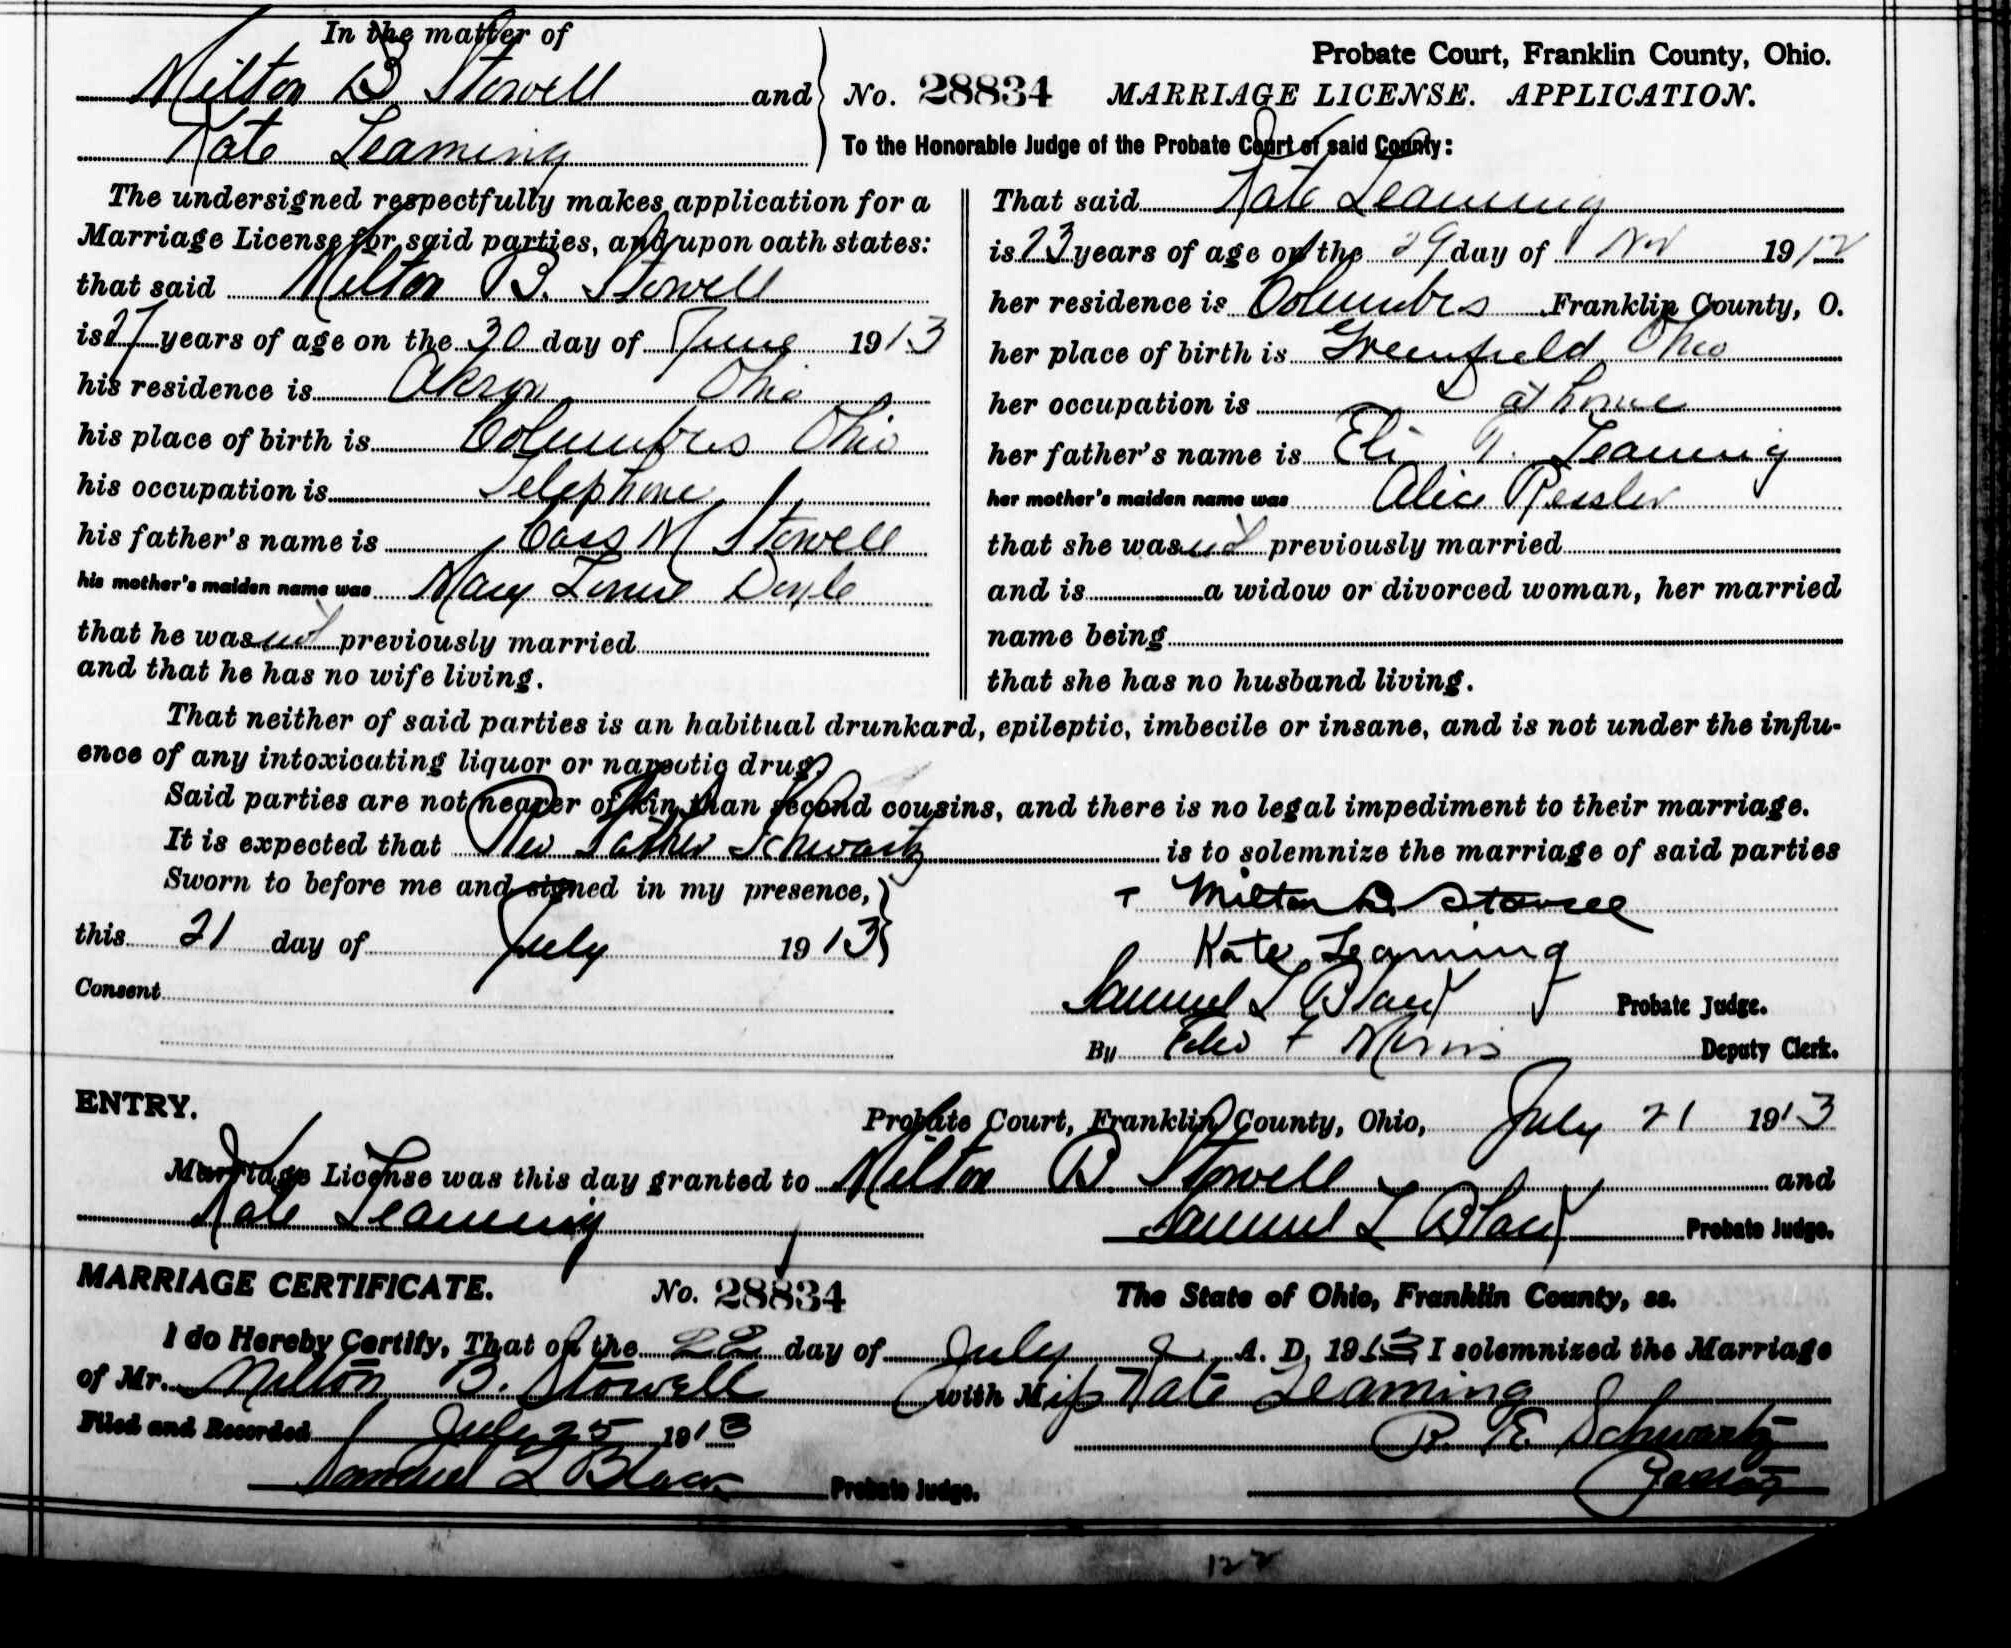 In the matter of
Milton B Stowell and
Kate Leaming
No. 28834
Probate Court, Franklin County, Ohio.
MARRIAGE LICENSE. APPLICATION.
To the Honorable Judge of the Probate Court of said County:
The undersigned respectfully makes application for a
Marriage License for said parties, and upon oath states:
that said Milton B. Stowell
is 27 years of age on the 30 day of June 1913
his residence is Akron Ohio
his place of birth is Columbus Ohio
his occupation is Telephone
his father's name is Cass M Stowell
his mother's maiden name was Mary Louise Doyle
that he was not previously married
and that he has no wife living.
That said Kate Leaming
is 23 years of age on the 29 day of Nov 1912
her residence is Columbus Franklin County, O.
her place of birth is Greenfield Ohio
her occupation is at home
her father's name is Eli T. Leaming
her mother's maiden name was Alice Ressler
that she was not previously married
and is a widow or divorced woman, her married
name being
that she has no husband living.
That neither of said parties is an habitual drunkard, epileptic, imbecile or insane, and is not under the influ-
ence of any intoxicating liquor or narcotic drug.
Said parties are not nearer of kin than second cousins, and there is no legal impediment to their marriage.
It is expected that Rev Father Schwartz is to solemnize the marriage of said parties
Sworn to before me and signed in my presence,
this 21 day of July 1913
Consent
Milton B. Stowell
Kate Leaming
Samuel L Black Probate Judge.
By F Morris Deputy Clerk.
ENTRY.
Probate Court, Franklin County, Ohio, July 21 1913
Marriage License was this day granted to Milton B. Stowell and
Kate Leaming
Samuel L Black Probate Judge.
MARRIAGE CERTIFICATE. No. 28834 The State of Ohio, Franklin County, ss.
I do Hereby Certify, That on the 22 day of July A. D. 1913 I solemnized the Marriage
of Mr. Milton B. Stowell with Miss Kate Leaming
Filed and Recorded July 25 1913
R. E. Schwartz
Samuel L Black Probate Judge.
Pastor
122